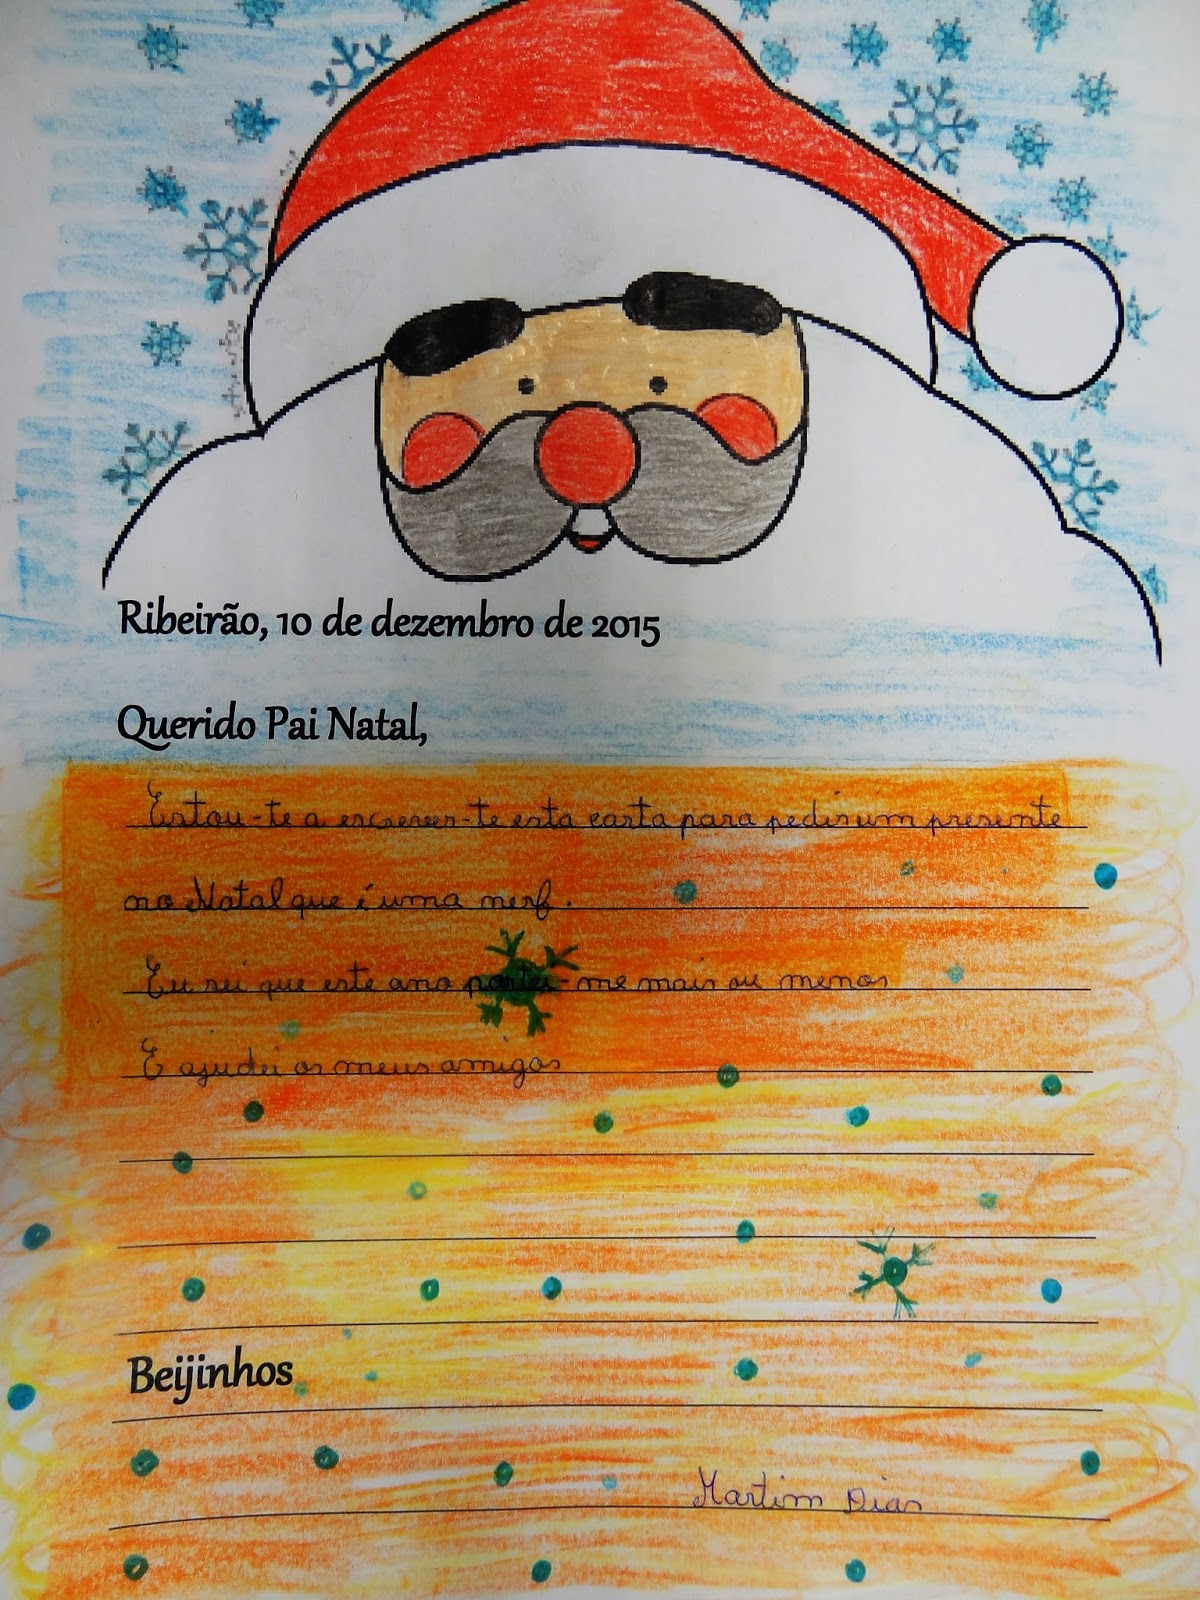 Ribeirão, 10 de dezembro de 2015
Querido Pai Natal,
Estou-te a escrever-te esta carta para pedir um presente
no Natal que é uma nerf.
Eu sei que este ano portei-me mais ou menos
E ajudei os meus amigos
Beijinhos
Martim Dias